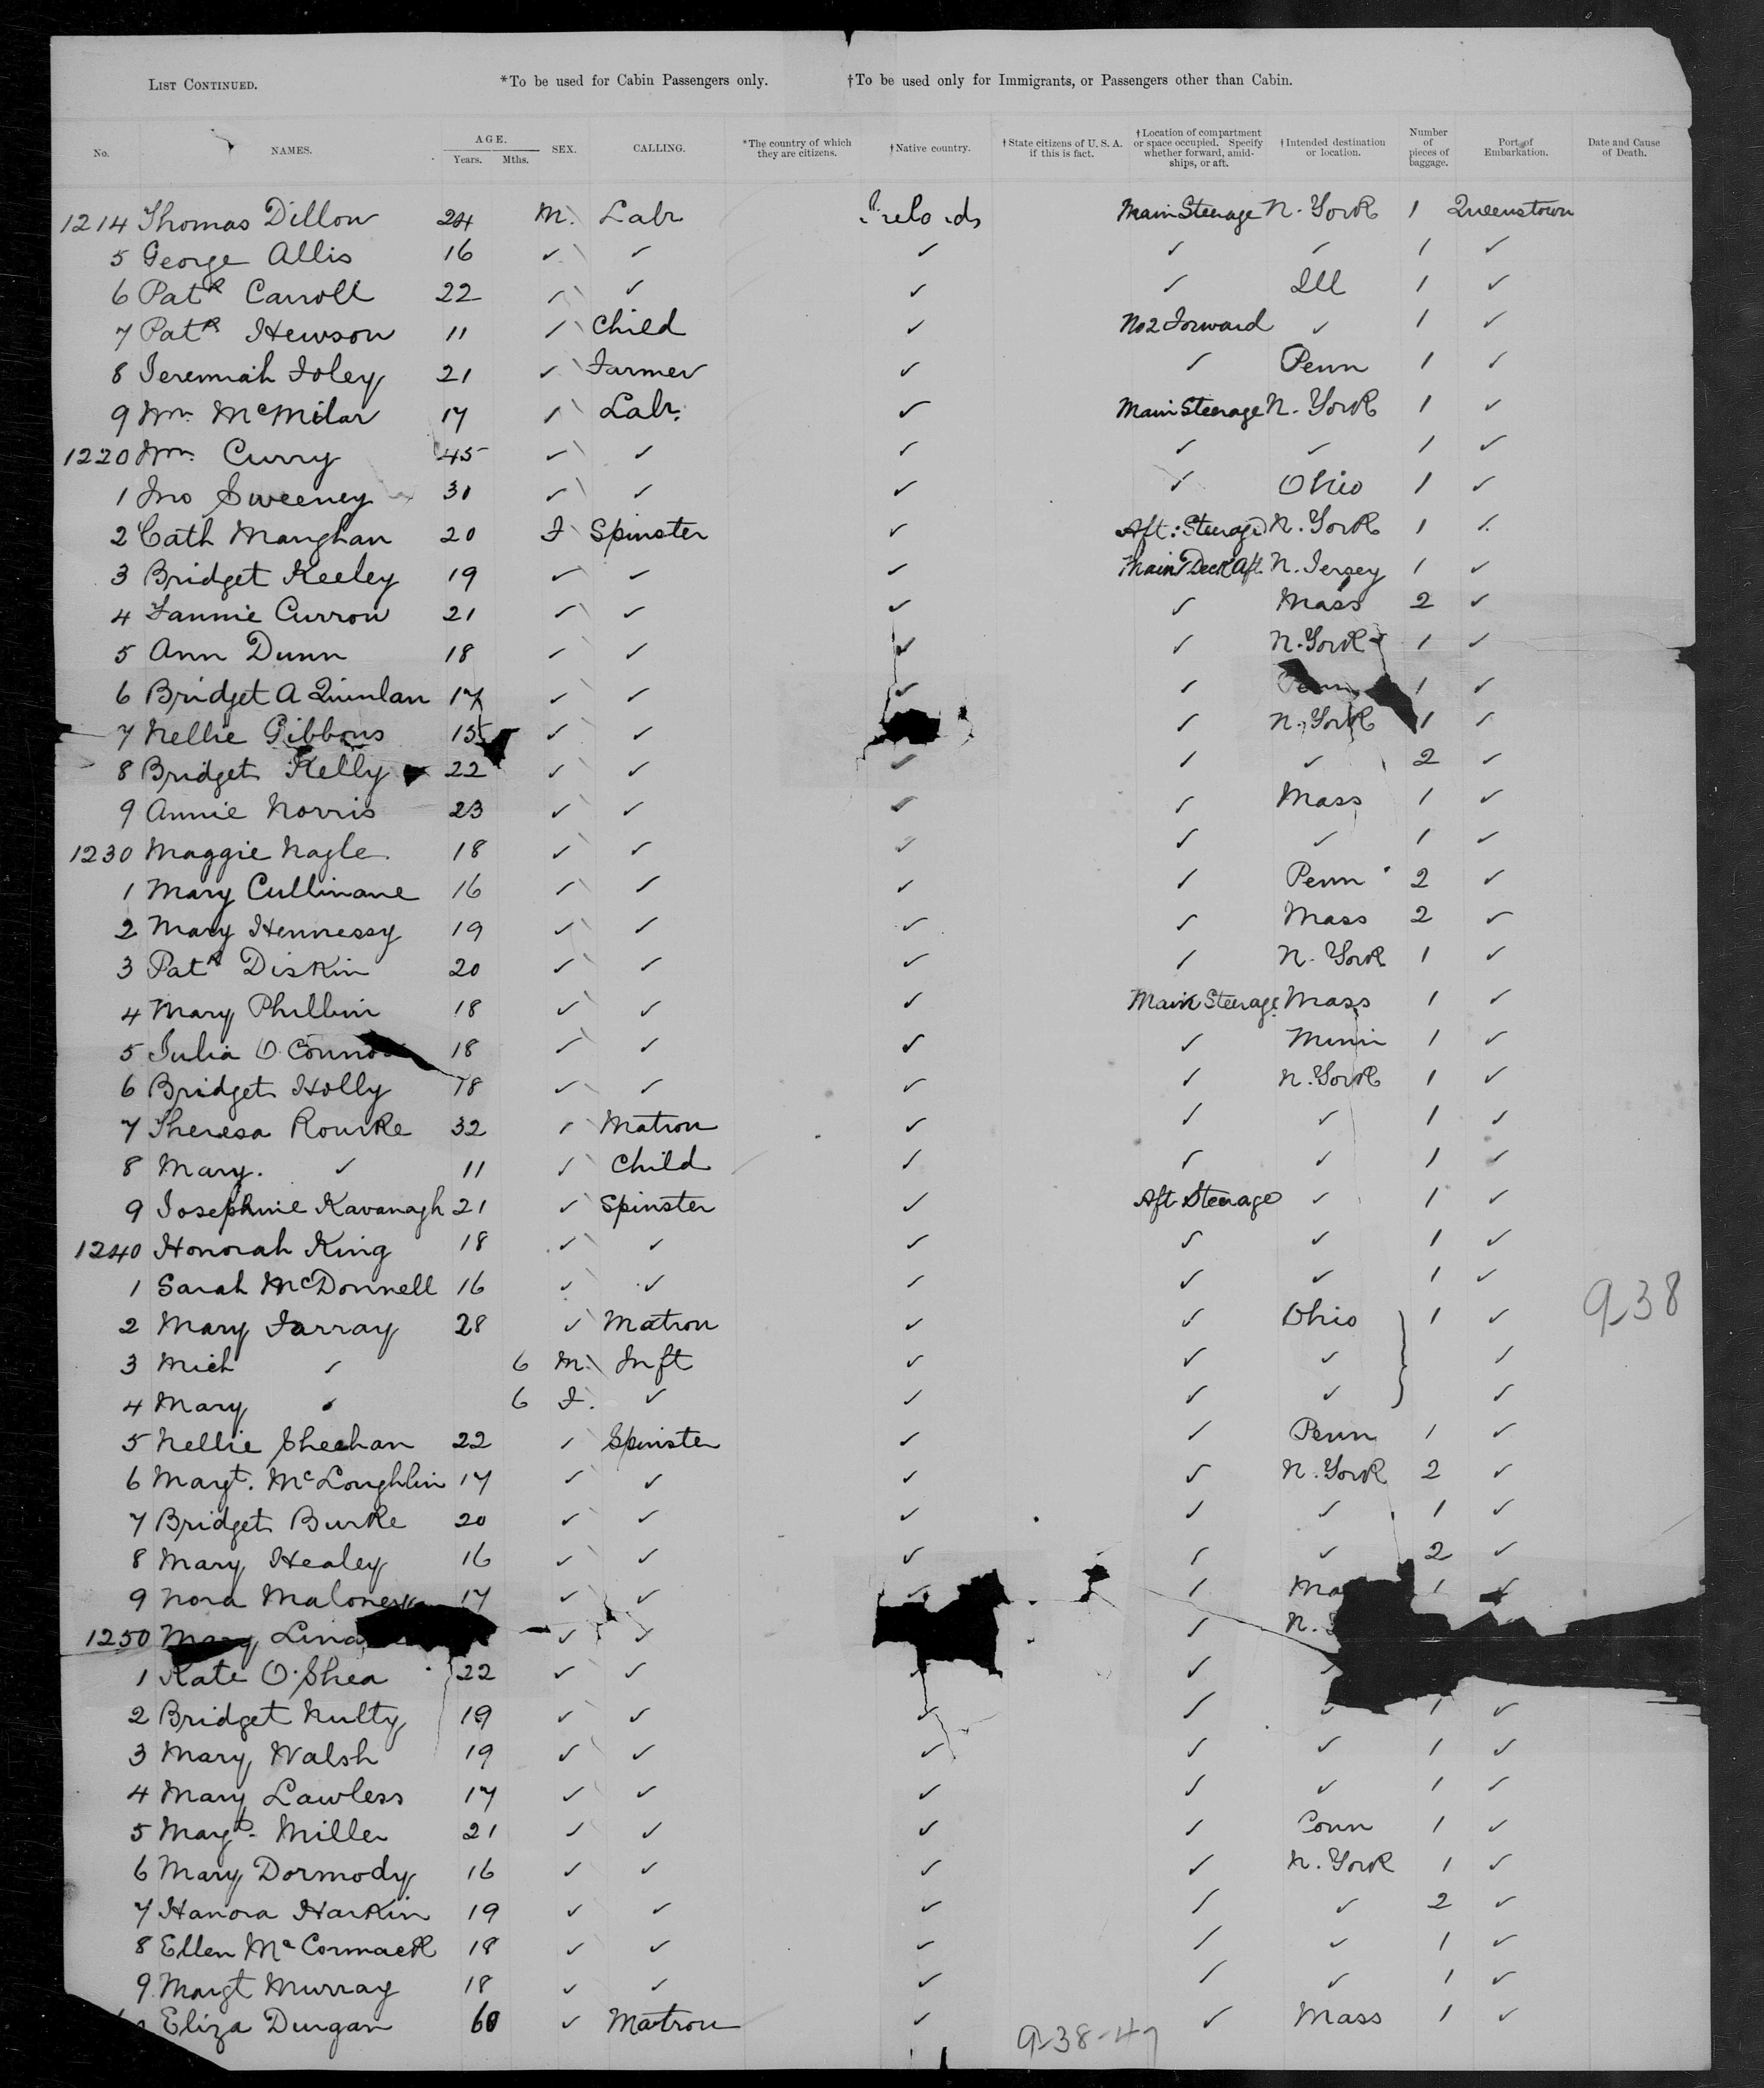 LIST CONTINUED. *To be used for Cabin Passengers only. †To be used only for Immigrants, or Passengers other than Cabin.
No. NAMES. AGE. Years. Mths. SEX. CALLING. *The country of which they are citizens. †Native country. †State citizens of U. S. A. if this is fact. †Location of compartment or space occupied. Specify whether forward, amidships, or aft. †Intended destination or location. Number of pieces of baggage. Port of Embarkation. Date and Cause of Death.
1214 Thomas Dillon 24 M. Labr Main Steerage N. York 1 Queenstown
5 George Allis 16 ✓ ✓ ✓ ✓ ✓ 1 ✓
6 Patk Carroll 22 ✓ ✓ ✓ ✓ Ill 1 ✓
7 Patk Hewson 11 ✓ Child ✓ No 2 Forward ✓ 1 ✓
8 Jeremiah Foley 21 ✓ Farmer ✓ ✓ Penn 1 ✓
9 Wm. McMilar 17 ✓ Labr. ✓ Main Steerage N. York 1 ✓
1220 Wm. Curry 45 ✓ ✓ ✓ ✓ ✓ 1 ✓
1 Jno Sweeney 31 ✓ ✓ ✓ ✓ Ohio 1 ✓
2 Cath Manghan 20 F Spinster ✓ Aft: Steerage N. York 1 ✓
3 Bridget Keeley 19 ✓ ✓ ✓ Main Deck Aft. N. Jersey 1 ✓
4 Fannie Curron 21 ✓ ✓ ✓ ✓ Mass 2 ✓
5 Ann Dunn 18 ✓ ✓ ✓ ✓ N. York 1 ✓
6 Bridget A Quinlan 17 ✓ ✓ ✓ ✓ Penn 1 ✓
7 Nellie Gibbons 15 ✓ ✓ ✓ N. York 1 ✓
8 Bridget Kelly 22 ✓ ✓ ✓ ✓ ✓ 2 ✓
9 Annie Norris 23 ✓ ✓ ✓ ✓ Mass 1 ✓
1230 Maggie Nagle. 18 ✓ ✓ ✓ ✓ ✓ 1 ✓
1 Mary Cullinane 16 ✓ ✓ ✓ ✓ Penn 2 ✓
2 Mary Hennessy 19 ✓ ✓ ✓ ✓ Mass 2 ✓
3 Patk Diskin 20 ✓ ✓ ✓ ✓ N. York 1 ✓
4 Mary Philbin 18 ✓ ✓ ✓ Main Steerage Mass 1 ✓
5 Julia O. Conno 18 ✓ ✓ ✓ ✓ Minn 1 ✓
6 Bridget Holly 18 ✓ ✓ ✓ ✓ N. York 1 ✓
7 Theresa Rourke 32 ✓ Matron ✓ ✓ ✓ 1 ✓
8 Mary. ✓ 11 ✓ Child ✓ ✓ ✓ 1 ✓
9 Josephine Kavanagh 21 ✓ Spinster ✓ Aft Steerage ✓ 1 ✓
1240 Honorah King 18 ✓ ✓ ✓ ✓ ✓ 1 ✓
1 Sarah McDonnell 16 ✓ ✓ ✓ ✓ ✓ 1 ✓
938
2 Mary Farray 28 ✓ Matron ✓ ✓ Ohio 1 ✓
3 Mich ✓ 6 M. Inft ✓ ✓ ✓ ✓
4 Mary ✓ 6 F. ✓ ✓ ✓ ✓ ✓
5 Nellie Sheehan 22 ✓ Spinster ✓ ✓ Penn 1 ✓
6 Margt. McLoughlin 17 ✓ ✓ ✓ ✓ N. York 2 ✓
7 Bridget Burke 20 ✓ ✓ ✓ ✓ ✓ 1 ✓
8 Mary Healey 16 ✓ ✓ ✓ ✓ ✓ 2 ✓
9 Nora Maloney 17 ✓ ✓ ✓ ✓ Ma 1 ✓
1250 Mary ✓ ✓ ✓ N.
1 Kate O'Shea 22 ✓ ✓ ✓ ✓ ✓
2 Bridget Nulty 19 ✓ ✓ ✓ ✓ ✓ 1 ✓
3 Mary Walsh 19 ✓ ✓ ✓ ✓ ✓ 1 ✓
4 Mary Lawless 17 ✓ ✓ ✓ ✓ ✓ 1 ✓
5 Margt. Miller 21 ✓ ✓ ✓ ✓ Conn 1 ✓
6 Mary Dormody 16 ✓ ✓ ✓ ✓ N. York 1 ✓
7 Hanora Harkin 19 ✓ ✓ ✓ ✓ ✓ 2 ✓
8 Ellen McCormack 18 ✓ ✓ ✓ ✓ ✓ 1 ✓
9 Margt Murray 18 ✓ ✓ ✓ ✓ ✓ 1 ✓
Eliza Durgan 60 ✓ Matron ✓ ✓ Mass 1 ✓
938-47